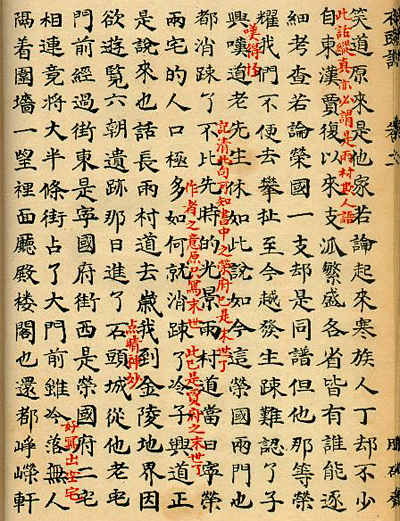 笑道原來是他家若論起來寒族人丁却不少
此話縱真亦必謂是雨村欺人語
自東漢賈復以來支派繁盛各省皆有誰能逐
細考查若論榮國一支却是同譜但他那等榮
耀我們不便去攀扯至今越發生踈難認了子
嘆得怪
興嘆道老先生休如此說如今這榮國兩門也
記清此句可知書中之榮府已是末世了
都消踈了不比先時的光景雨村道當日寧榮
作者之意原只寫末世 此已是賈府之末世了
兩宅的人口極多如何就消踈了冷子興道正
是說來也話長雨村道去歲我到金陵地界因
点睛神妙
欲遊覽六朝遺跡那日進了石頭城從他老宅
門前經過街東是寧國府街西是榮國府二宅
好寫出空宅
相連竟將大半條街占了大門前雖冷落無人
隔着圍墻一望裡面廳殿楼閣也還都崢嶸軒